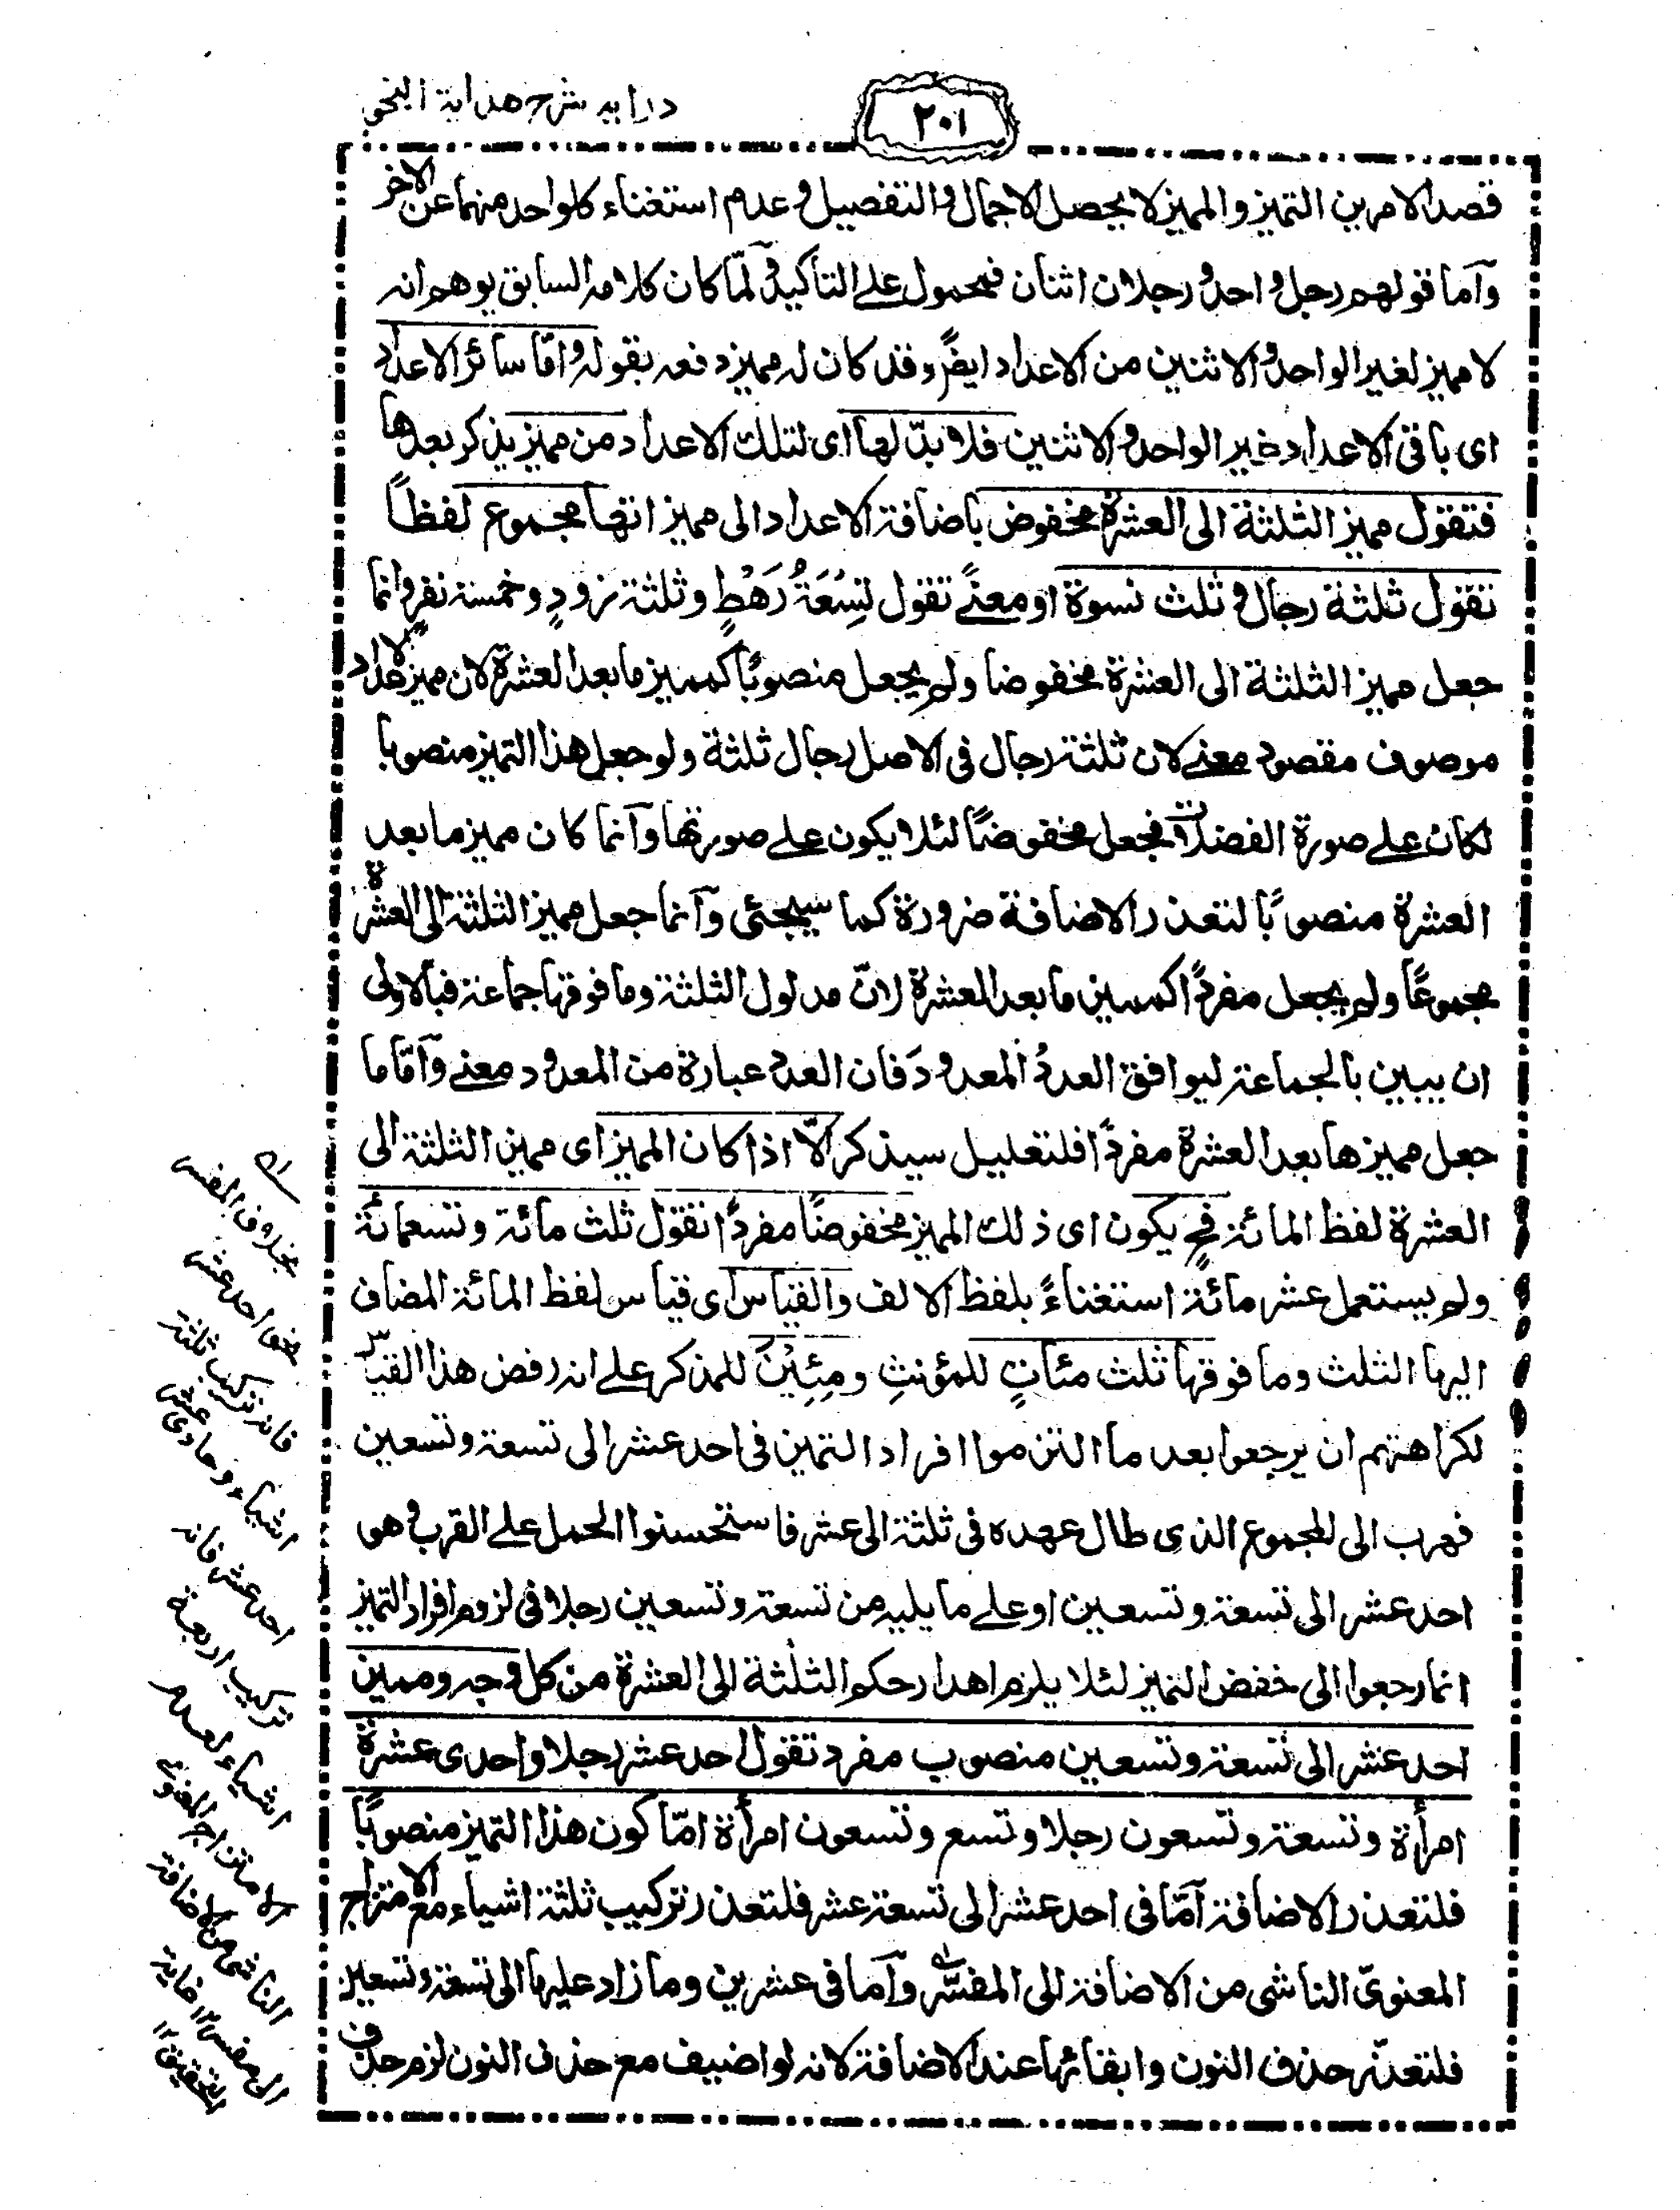 درايه شرح هداية النحو
٢٠١
قصد الامرين التميز والمميز لا يحصل الاجمال والتفصيل وعدم استغناء كلواحد منهما عن الاخر
وآما قولهم رجل واحد ورجلان اثنان فمحمول علے التاكيد ولمّا كان كلامه السابق يوهم انه
لا مميز لغير الواحد والاثنين من الاعداد ايضًا وقد كان له مميز دفعه بقوله وامّا سائر الاعداد
اى باقى الاعداد غير الواحد والاثنين فلا بدّ لها اى لتلك الاعداد من مميز يذكر بعدها
فتقول مميز الثلثة الى العشرة مخفوض باضافة الاعداد الى مميزاتها مجموع لفظاً
تقول ثلثة رجال وثلث نسوة او معنےً تقول تِسْعَةُ رَهْطٍ وثلثة زودٍ وخمسة نفرٍ وانما
جعل مميز الثلثة الى العشرة مخفوضا ولم يجعل منصوبًا كمميز ما بعد العشرة لان مميز الاعداد
موصوف مقصود معنے لان ثلثة رجال فى الاصل رجال ثلثة ولو جعل هذا التميز منصوبا
لكان علے صورة الفضلات فجعل مخفوضًا لئلا يكون علے صورتها وآنما كان مميز ما بعد
العشرة منصوبًا لتعذر الاضافة ضرورة كما سيجئى وآنما جعل مميز الثلثة الى العشرة
مجموعًا ولم يجعل مفردًا كمميز ما بعد العشرة لانّ مدلول الثلثة وما فوقها جماعة فبالاولى
ان يبين بالجماعة ليوافق العددُ المعدودَ فان العدد عبارة من المعدود معنے وآمّا ما
جعل مميزها بعد العشرة مفردًا فلتعليل سيذكر الّا اذا كان المميز اى مميز الثلثة الى
العشرة لفظ المائة فح يكون اى ذلك المميز مخفوضًا مفردًا تقول ثلث مائة وتسعمائة
ولم يستعمل عشر مائة استغناءً بلفظ الالف والقياس اى قياس لفظ المائة المضاف
اليها الثلث وما فوقها ثلث مئاتٍ للمؤنثِ ومِئِيْنَ للمذكر علے انه رفض هذا القياس
لكراهتهم ان يرجعوا بعد ما التزموا افراد التميز فى احد عشر الى تسعة وتسعين
فهرب الى المجموع الذى طال عهده فى ثلثة الى عشر فاستحسنوا الحمل علے القرب وهو
احد عشر الى تسعة وتسعين او علے ما يليه من تسعة وتسعين رجلا فى لزوم افراد التميز
انما رجعوا الى خفض التميز لئلا يلزم اهدار حكم الثلثة الى العشرة من كل وجه ومميز
احد عشر الى تسعة وتسعين منصوب مفرد تقول احد عشر رجلا واحدى عشرة
امرأة وتسعة وتسعون رجلا وتسع وتسعون امرأة امّا كون هذا التميز منصوبًا
فلتعذر الاضافة آمّا فى احد عشر الى تسعة عشر فلتعذر تركيب ثلثة اشياء مع الامتزاج
المعنوىّ الناشى من الاضافة الى المفسّر وآما فى عشرين وما زاد عليها الى تسعة وتسعين
فلتعذّر حذف النون وابقائها عند الاضافة لانه لو اضيف مع حذف النون لزم حذف
بخلاف الفس
نحو احد عشر
فانه تركيب ثلثة
اشياء وحادى عشر
احد عشر فانه
تركيب اربعة
اشياء لعدم
الامتزاج المعنوى
الناشى من الاضافة
الى مفسر ١٢ غاية
التحقيق ١٢